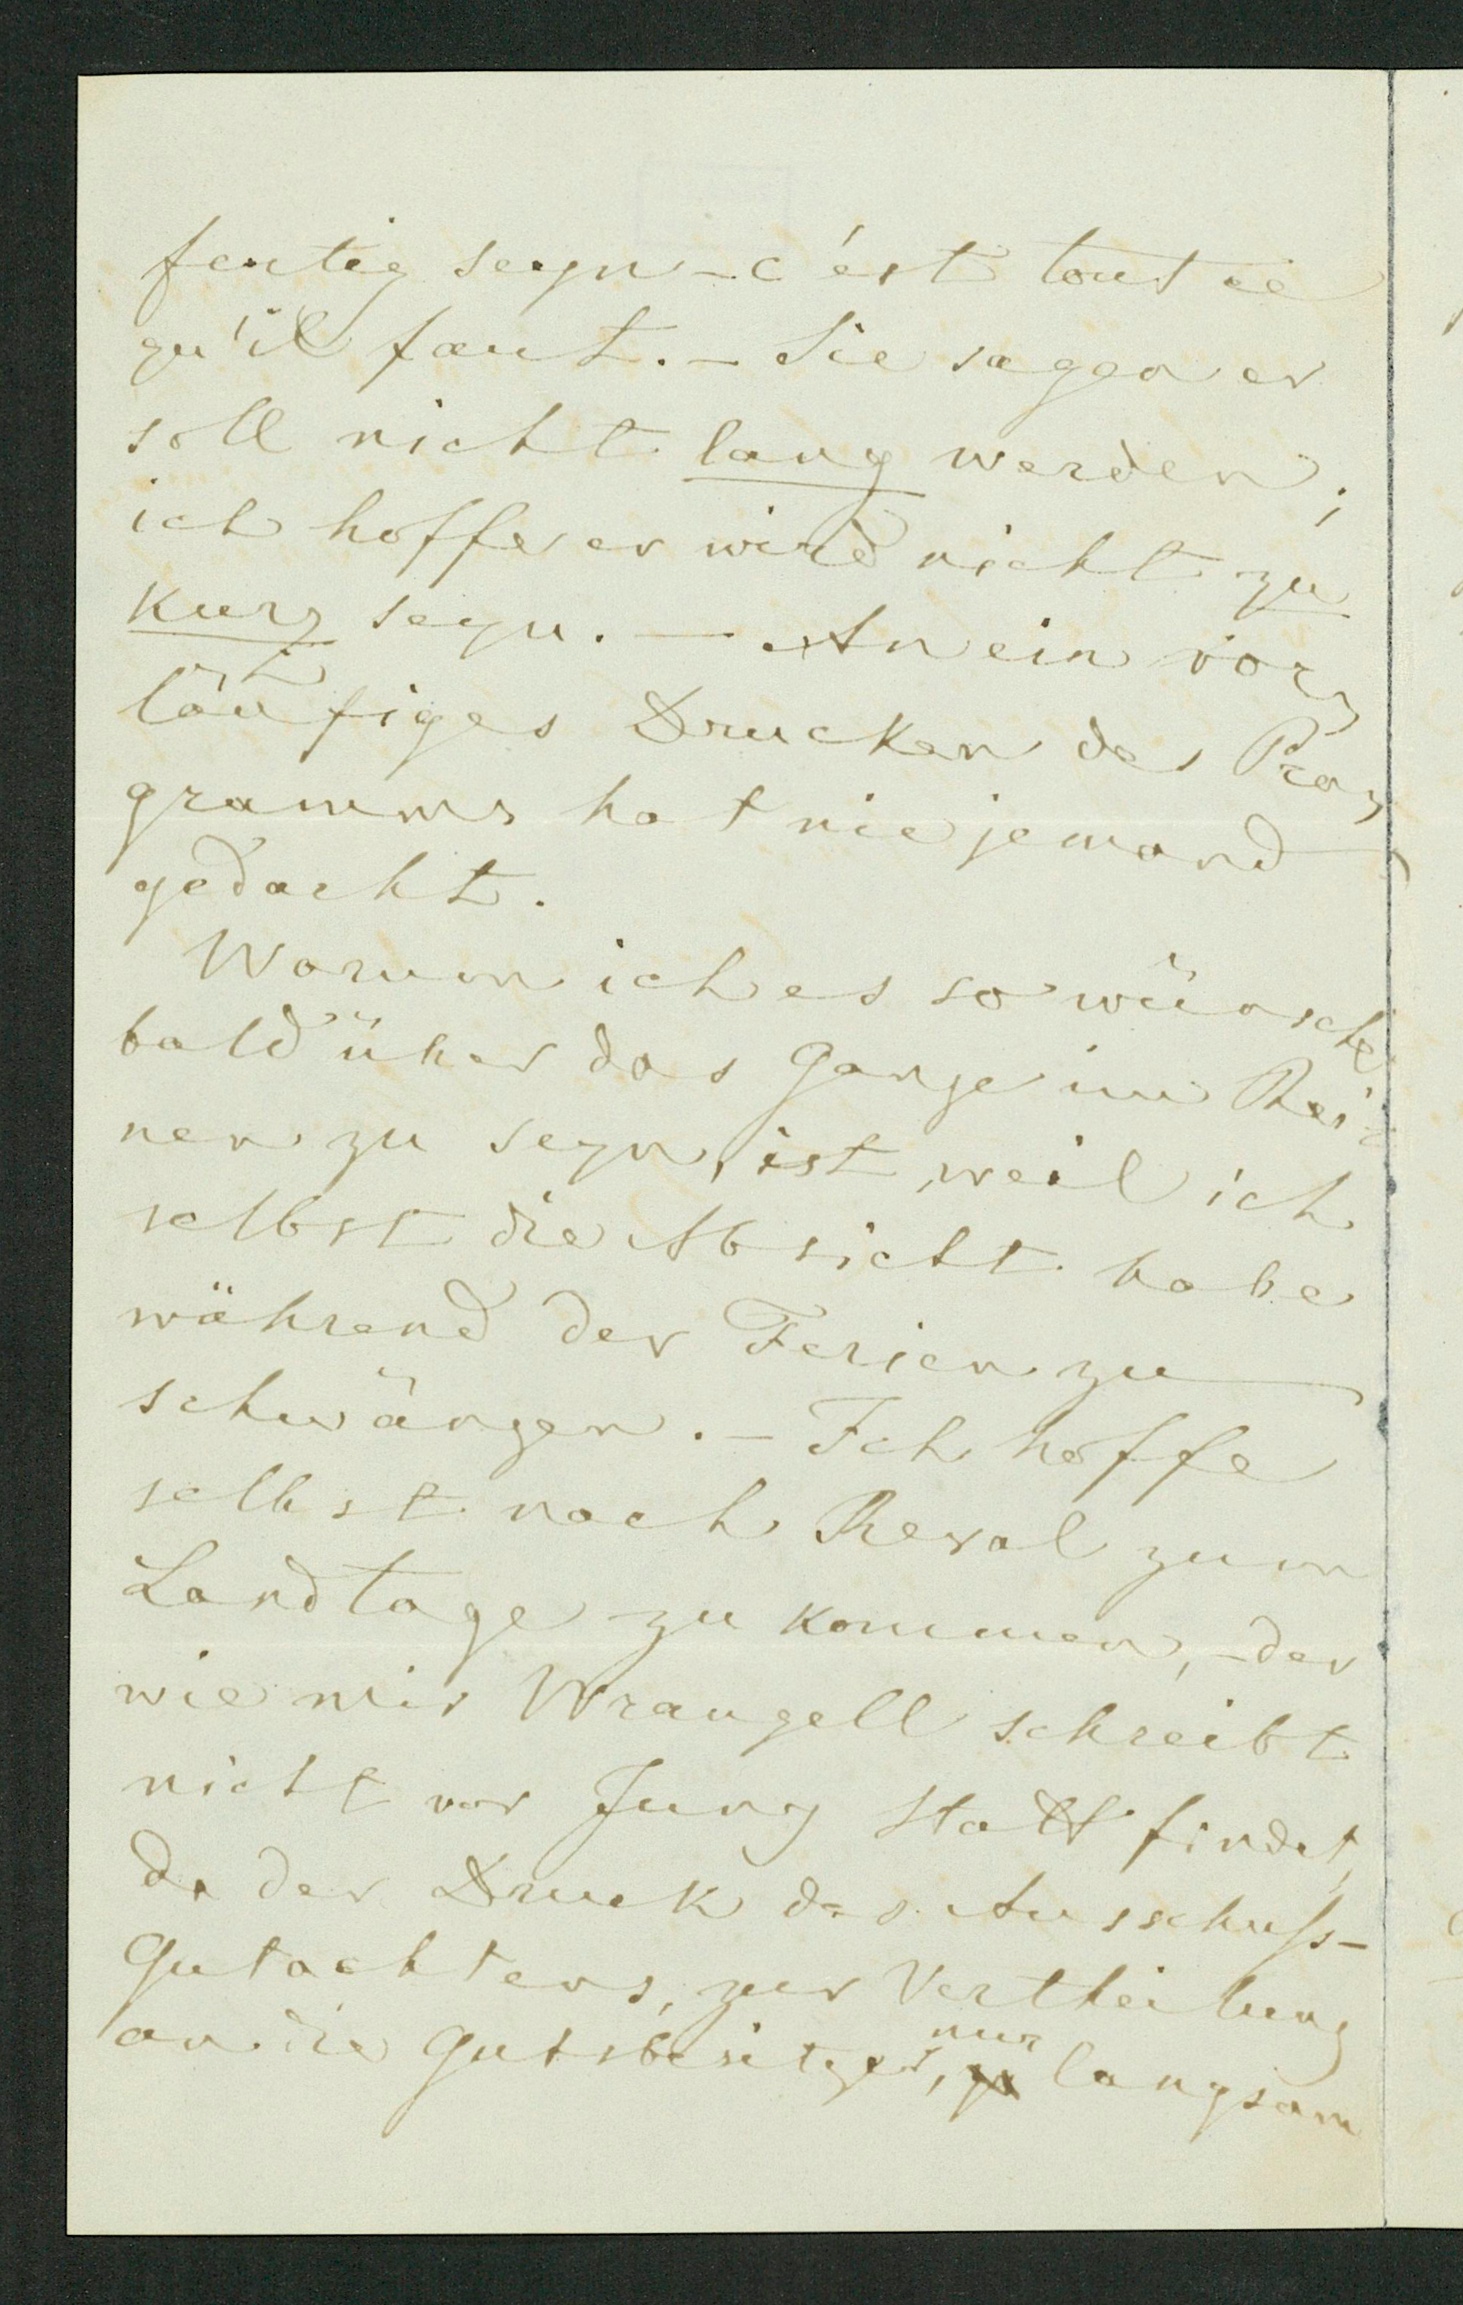 fertig seyn – c'est tout ce
qu'il faut. – Sie sagen er
soll nicht lang werden;
ich hoffe er wird nicht zu
kurz seyn. – An ein vor-
läufiges Drucken des Pro-
gramms hat nie jemand
gedacht.
Warum ich es so wünsche
bald über das Ganze im Rei-
nen zu seyn, ist, weil ich
selbst die Absicht habe
während der Ferien zu
schwänzen. – Ich hoffe
selbst nach Reval zum
Landtage zu kommen, – der
wie mir Wrangell schreibt
nicht vor Juny statt findet,
da der Druck des Ausschuss-
Gutachtens, zur Vertheilung
an die Gutsbesitzer, nur langsam